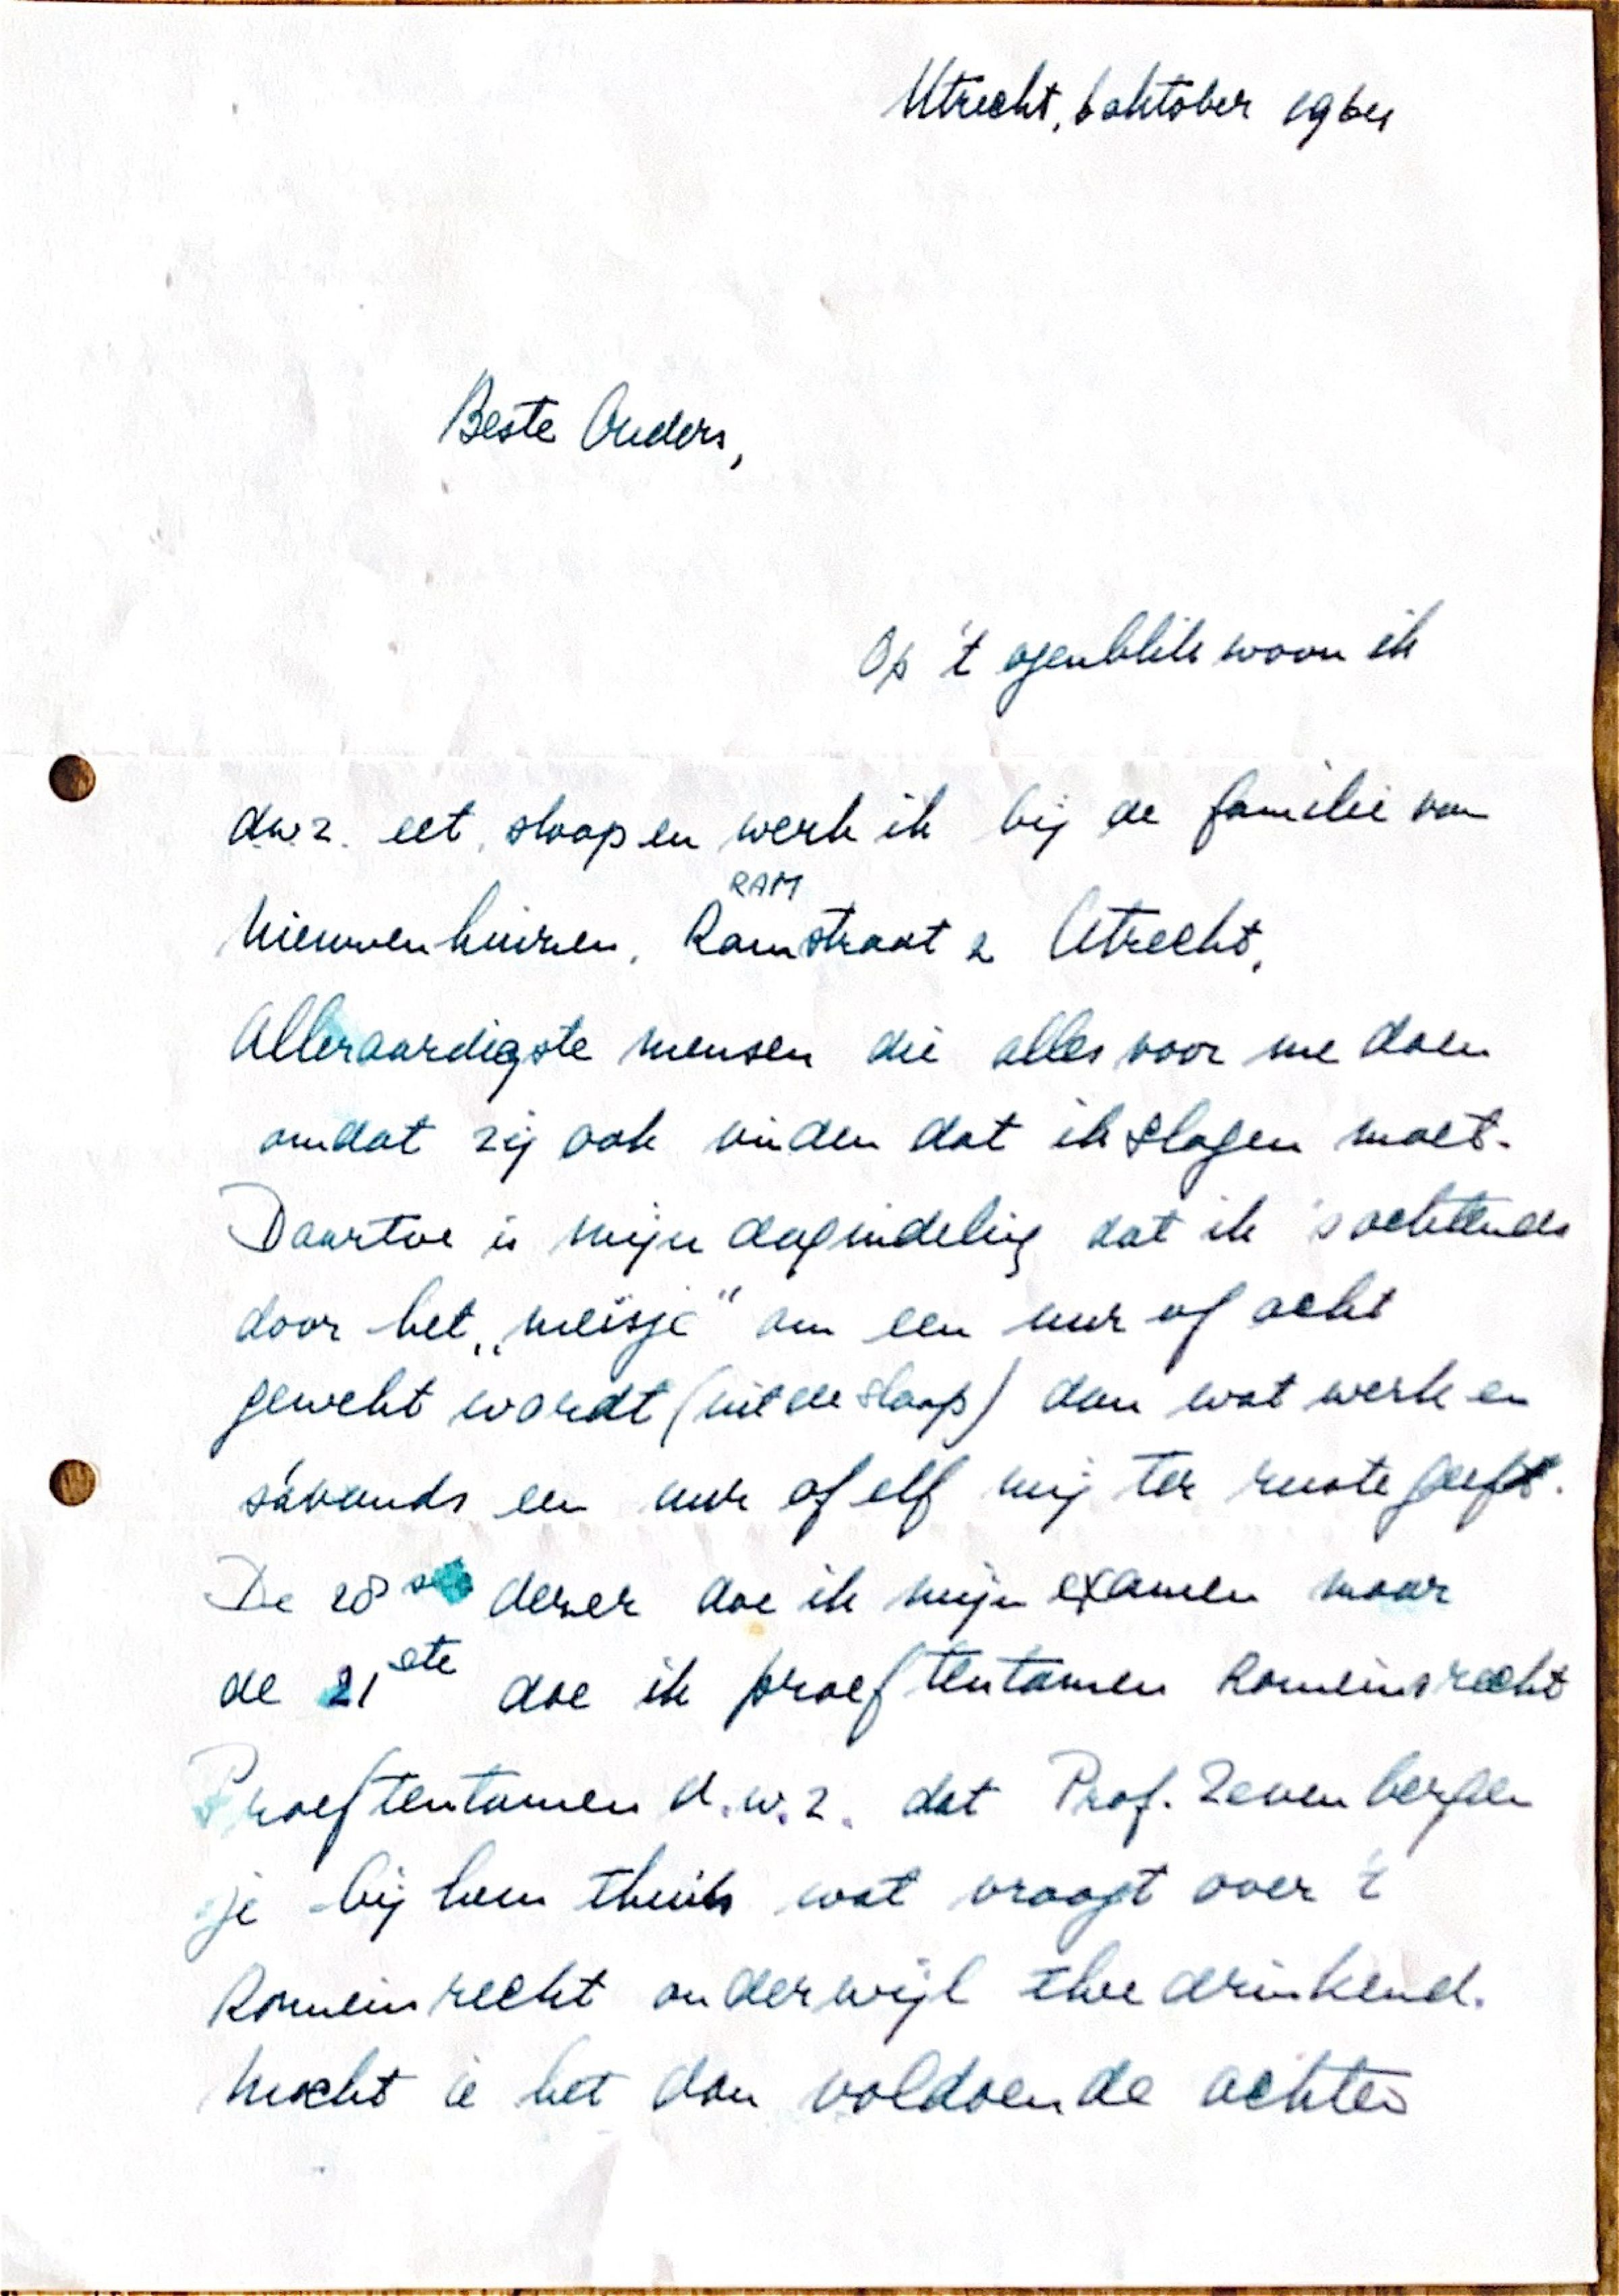 Utrecht, 6 oktober 1964
Beste Ouders,
Op 't ogenblik woon ik
d.w.z. eet, slaap en werk ik bij de familie van
Nieuwenhuizen, Ramstraat 2 Utrecht.
RAM
Alleraardigste mensen die alles voor me doen
omdat zij ook vinden dat ik slagen moet.
Daartoe is mijn dagindeling dat ik 's ochtends
door het „meisje" om een uur of acht
gewekt wordt (uit de slaap) dan wat werk en
s'avonds een uur of elf mij ter ruste geeft.
De 28 dezer doe ik mijn examen maar
de 21ste doe ik proeftentamen Romeinsrecht
Proeftentamen d.w.z. dat Prof. Zevenbergen
je bij hem thuis wat vraagt over 't
Romeinrecht onderwijl thee drinkend.
Mocht ie het dan voldoende achten